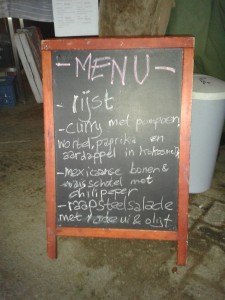 -MENU-
- rijst
-curry met pompoen,
wortel, paprika en
aardappel in kokosmelk
-Mexicaanse bonen&
maïsschotel met
chilipeper
-raapsteelsalade
met rode ui & olijf